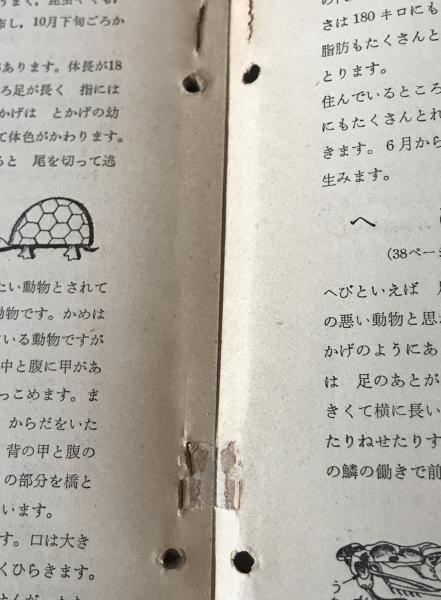 布し，10月下旬ごろか
あります。体長が18
ろ足が長く　指には
かげは　とかげの幼
て体色がかわります。
ると　尾を切って逃
たい動物とされて
動物です。かめは
いる動物ですが
中と腹に甲があ
っこめます。ま
からだをいた
背の甲と腹の
の部分を橋と
います。
す。口は大き
くひらきます。
さは180キロにも
脂肪もたくさんと
とります。
住んでいるところ
にもたくさんとれ
きます。6月から
生みます。
へ
(38ペー
へびといえば
の悪い動物と思
かげのようにあ
は　足のあとが
きくて横に長い
たりねせたりす
の鱗の働きで前
う